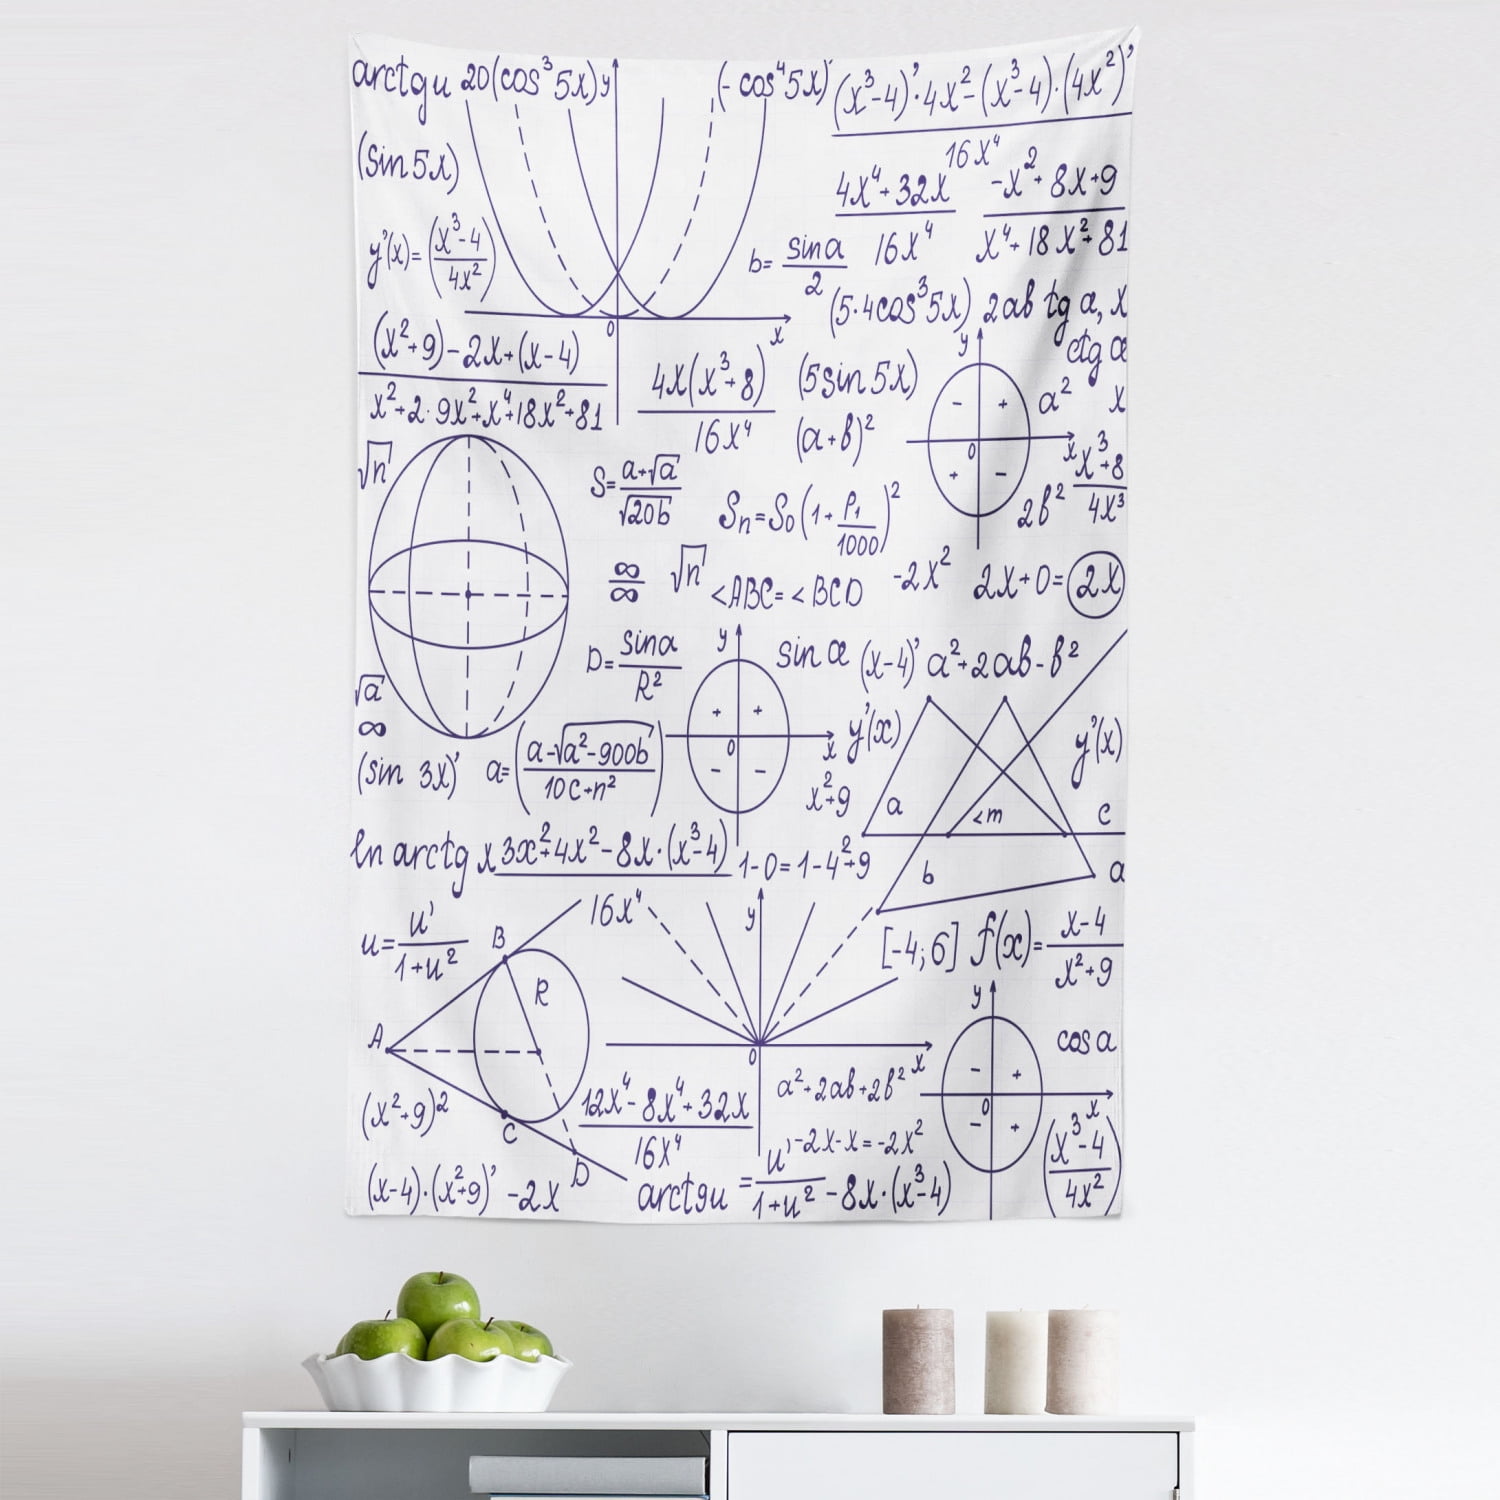 arctgu 20(cos³5x) y (-cos⁴5x)' (x³-4)'·4x²-(x³-4)·(4x²)'
16x⁴
(sin5x)
4x⁴+32x -x²+8x+9
16x⁴ x⁴+18x²+81
y'(x)=(x³-4
4x²)
b= sina
2
(5·4cos³5x) 2ab tg α, x
0 x
y ctg α
(x²+9)-2x+(x-4)
x²+2·9x²+x⁴+18x²+81
4x(x³+8)
16x⁴
(5sin5x)
- + a² x
(a+b)²
0 x
+ - x³+8
4x³
2b²
√n
S= a+√a
√20b
Sn=S0(1+ P1
1000)²
∞
∞
√n <ABC=<BCD -2x² 2x+0=2x
D= sinα
R²
y sin α (x-4)' a²+2ab-b²
√a
∞
+ +
0 x
- -
y'(x) y'(x)
(sin 3x)' a=(a-√a²-900b
10c+n²)
x²+9
a <m c
b a
ln arctg x 3x²+4x²-8x·(x³-4)
16x⁴
1-0=1-4²+9
u= u'
1+u²
B y
[-4;6] f(x)= x-4
x²+9
R
A
0 x
y cos a
- +
0 x
- +
(x²+9)²
C
D
12x⁴-8x⁴+32x
16x⁴
a²+2ab+2b²
-2x-x=-2x²
(x³-4
4x²)
(x-4)·(x²+9)' -2x arctgu = u'
1+u² -8x·(x³-4)